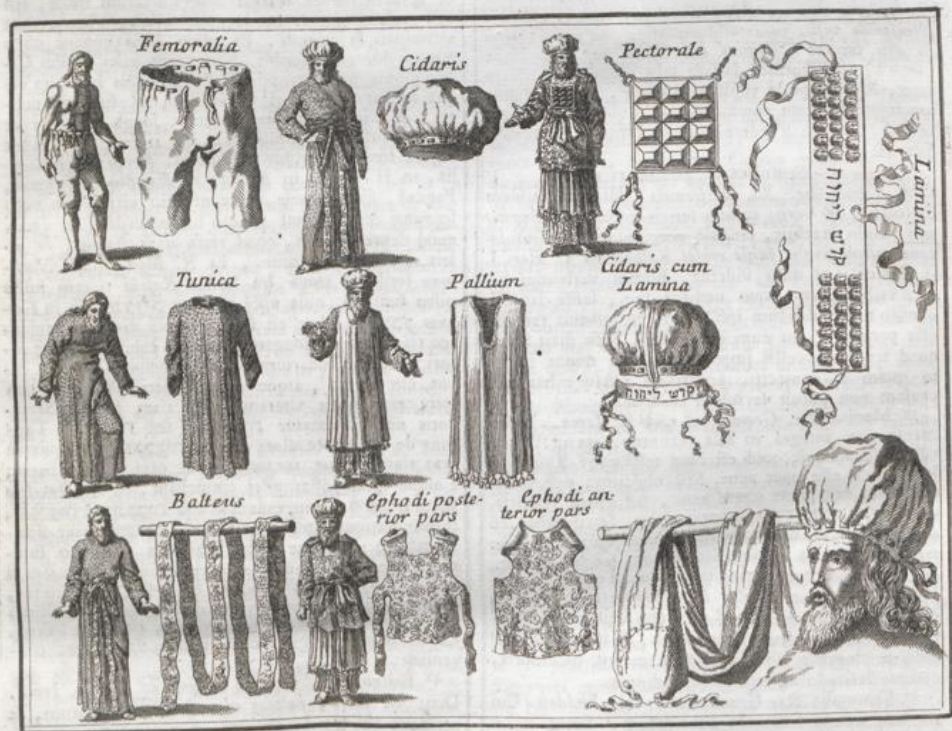 Femoralia
Cidaris
Pectorale
Lamina
קדש ליהוה
Tunica
Pallium
Cidaris cum
Lamina
קדש ליהוה
Balteus
Ephodi poste-
rior pars
Ephodi an-
terior pars